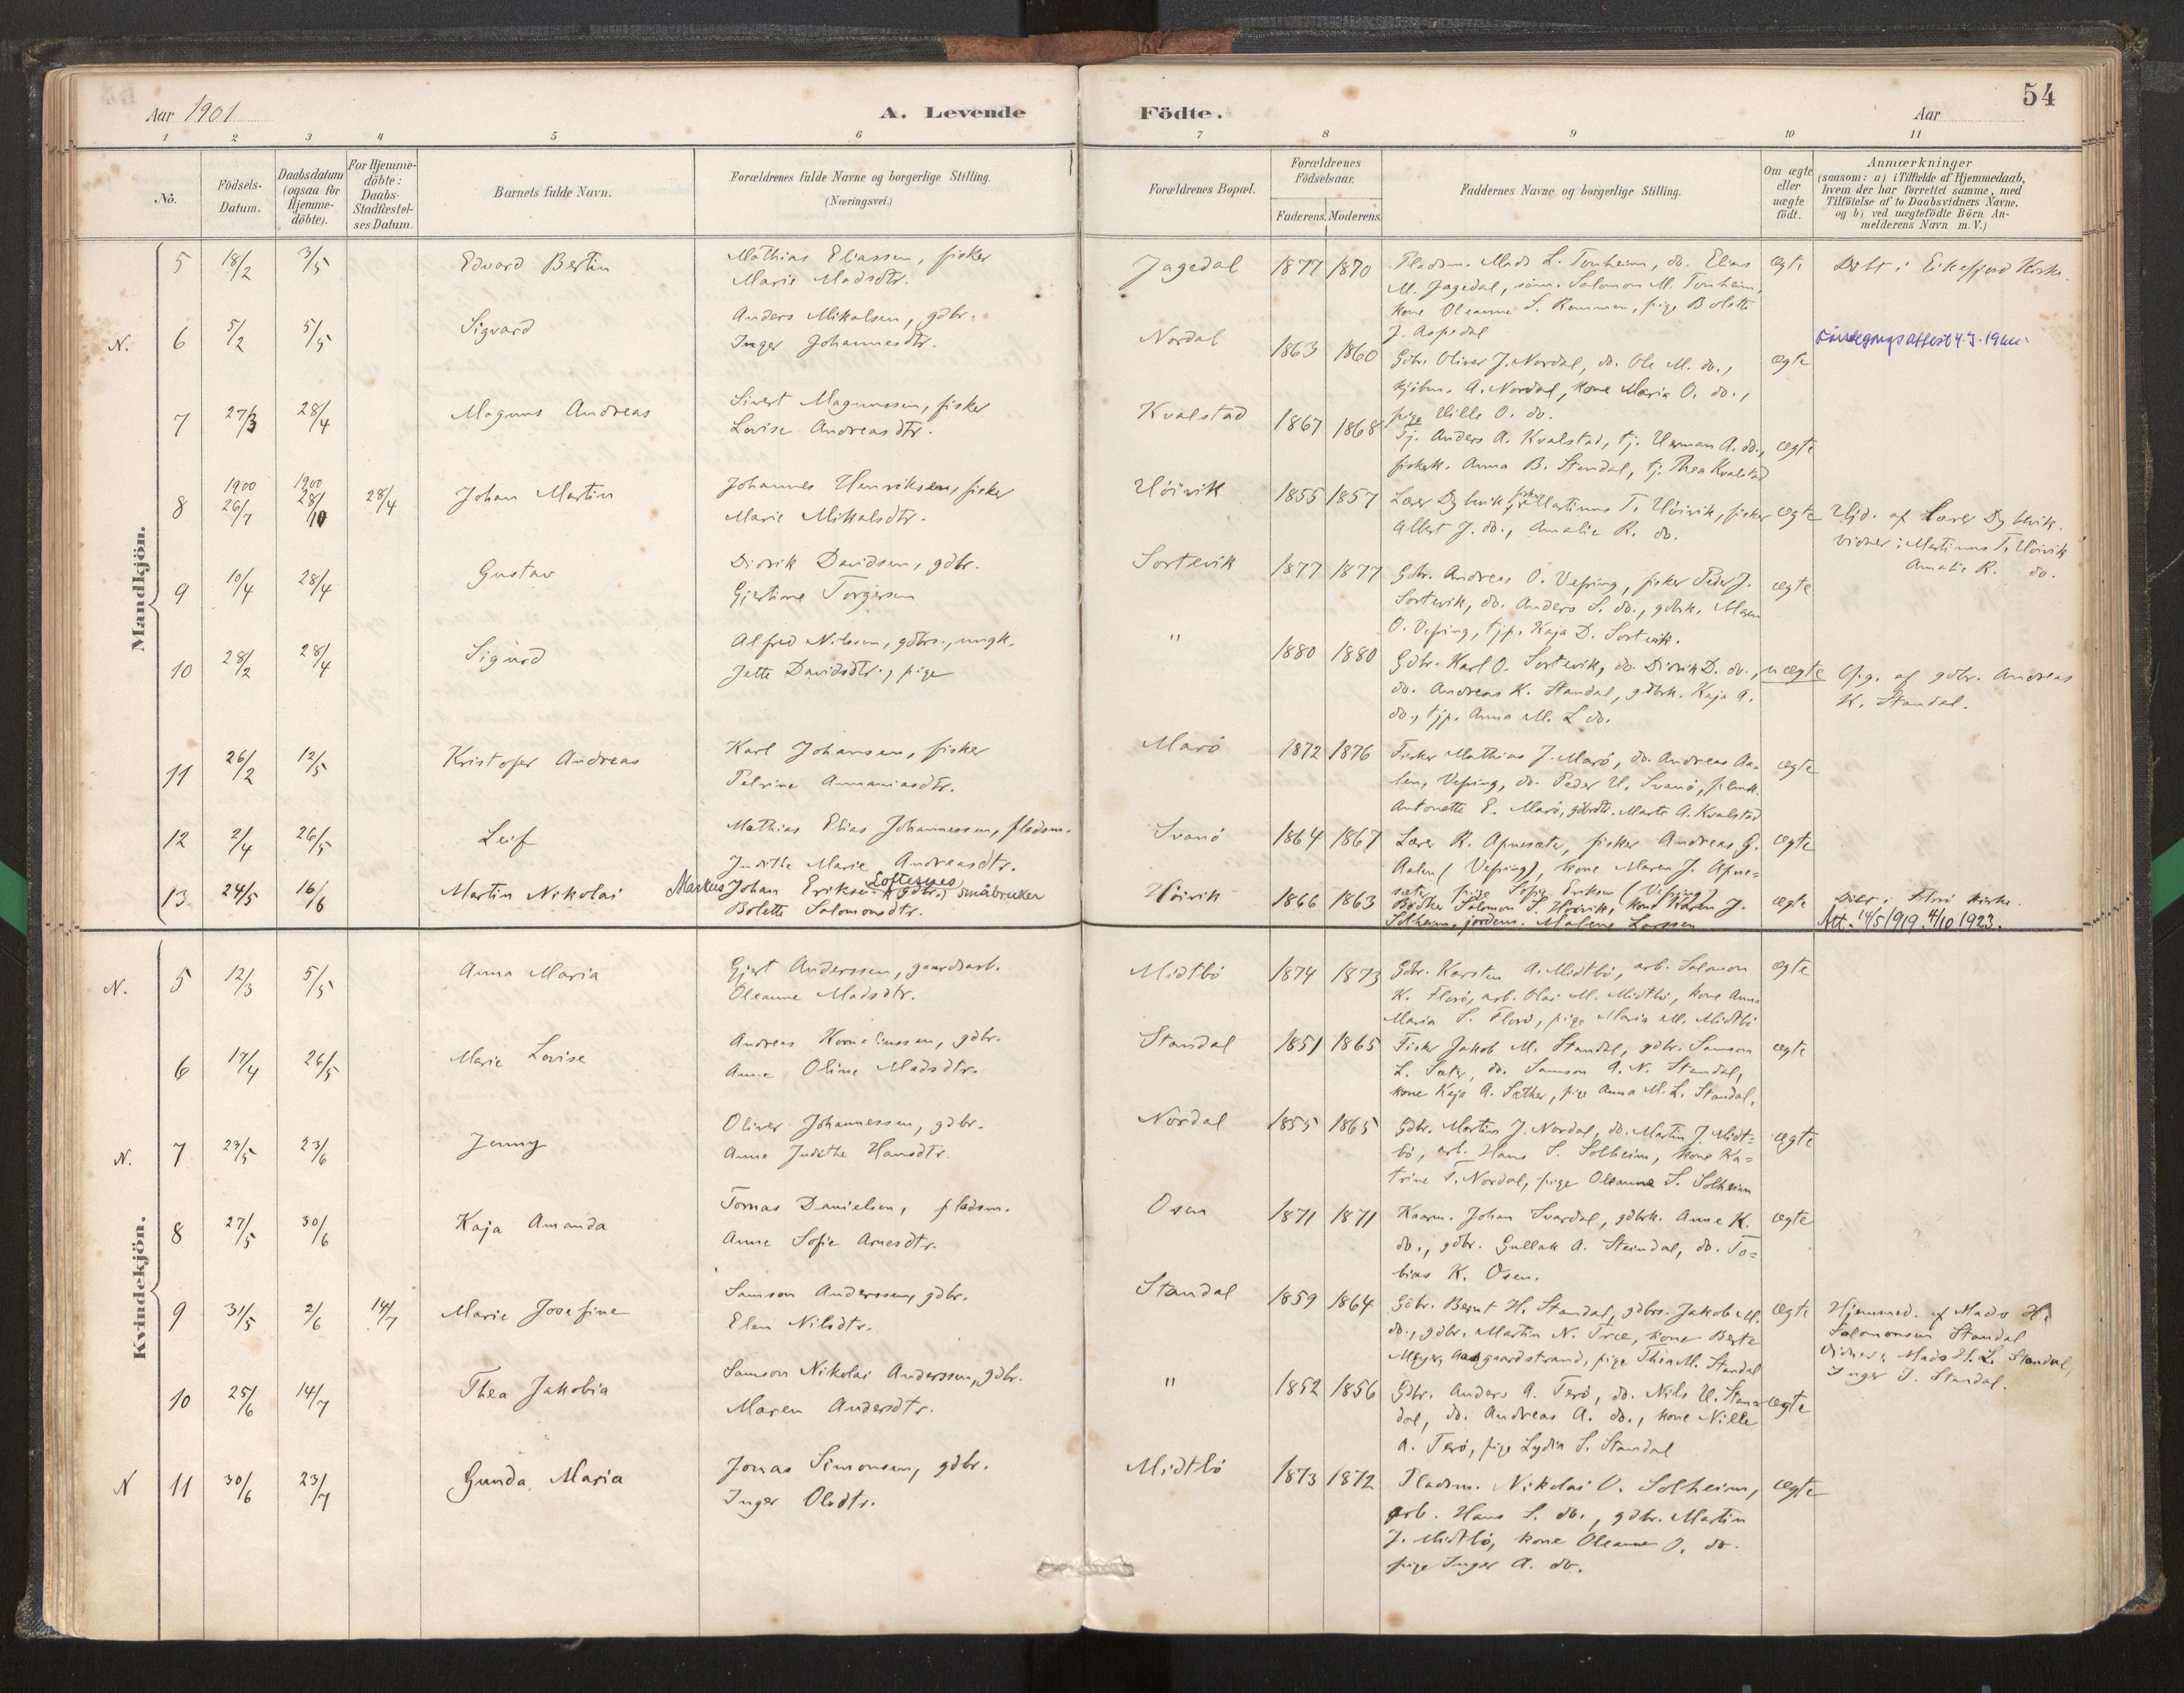 54
Aar 1901
A. Levende
Födte.
Aar
1 2 3 4 5 6 7 8 9 10 11
No.
Födsels-Datum.
Daabsdatum (ogsaa for Hjemme-döbte).
For Hjemme-döbte: Daabs-Stadfæstel-ses Datum.
Barnets fulde Navn.
Forældrenes fulde Navne og borgerlige Stilling.
(Næringsvei.)
Forældrenes Bopæl.
Forældrenes Födselsaar.
Faderens. Moderens.
Faddernes Navne og borgerlige Stilling.
Om ægte eller uægte födt.
Anmærkninger
(saasom: a) i Tilfælde af Hjemmedaab,
hvem der har forrettet samme, med
Tilföielse af to Daabsvidners Navne.
og b) ved uægtefödte Börn An-
melderens Navn m. V.)
Mandkjön.
5 18/2 3/5 Edvard Bertin
Mathias Eliassen, fisker
Marie Madsdtr.
Jagedal 1877 1870
Pladsm. Mads L. Tonheim, do. Elias
M. Jagedal, sönn. Salomon M. Tonheim,
kone Oleanne S. Rommen, pige Bolette
J. Aspedal
ægte
Döbt i Eikefjord Kirke.
N. 6 5/2 5/5 Sigvard
Anders Mikalsen, gdbr.
Inger Johannesdtr.
Nordal 1863 1860
Gdbr. Oliver J. Nordal, do. Ole M. do.,
kjöbm. A. Nordal, kone Maria O. do.,
pige Nille O. do.
ægte
7 27/3 28/4 Magnus Andreas
Sivert Magnussen, fisker
Lovise Andreasdtr.
Kvalstad 1867 1868
Tj. Anders A. Kvalstad, tj. Herman A. do.,
fiskerk. Anna B. Standal, tj. Thea Kvalstad
ægte
8 1900 26/7 1900 28/10 28/4 Johan Martin
Johannes Henriksen, fisker
Marie Mikalsdtr.
Höivik 1855 1857
Lærer Dybevik, fisker Martinus T. Höivik, fisker
Albert J. do., Amalie R. do.
ægte
Hjd. af Lærer Dybevik.
Vidner: Martinus T. Höivik
Amalie R. do.
9 10/4 28/4 Gustav
Didrik Davidsen, gdbr.
Gjertine Torgersen
Sortevik 1877 1877
Gdbr. Andreas O. Vefring, fisker Peder J.
Sortevik, do. Anders S. do., gdbrk. Maren
O. Vefring, tjp. Kaja D. Sortevik.
ægte
10 28/2 28/4 Sigurd
Alfred Nilsen, gdbrs., ungk.
Jette Davidsdtr., pige
" 1880 1880
Gdbr. Karl O. Sortevik, do. Didrik D. do.,
do. Andreas K. Standal, gdbrk. Kaja A.
do., tjp. Anna M. L do.
uægte
Opg. af gdbr. Andreas
K. Standal.
11 26/2 12/5 Kristofer Andreas
Karl Johansen, fisker
Petrine Annaniasdtr.
Marö 1872 1876
Fisker Mathias J. Marö, do. Andreas Aa-
len, Vefring, do. Peder H. Svanö,
Antonette E. Marö, gdbrdt. Marta A. Kvalstad
ægte
12 2/4 26/5 Leif
Mathias Elias Johannessen, pladsm.
Judithe Marie Andreasdtr.
Svanö 1864 1867
Lærer R. Apnesæter, fisker Andreas G.
Aalen (Vefring), kone Maren J. Apne-
sæter, pige Sofie Eriksen (Vefring)
ægte
13 24/5 16/6 Martin Nikolai
Markus Johan Eriksen Softesnes, gdbr., småbruker
Bolette Salomonsdtr.
Höivik 1866 1863
Bödker Salomon S. Höivik, kone Maren J.
Solheim, jordem. Malene Larssen
ægte
Döbt i Florö kirke.
Att. 14/5 1919. 4/10 1923.
Kvindekjön.
N. 5 12/3 5/5 Anna Maria
Gjert Anderssen, gaardsarb.
Oleanne Madsdtr.
Midtbö 1874 1873
Gdbr. Karsten A. Midtbö, arb. Salomon
K. Florö, arb. Olai M. Midtbö, kone Anna
Maria S. Florö, pige Maria M. Midtbö
ægte
6 17/4 26/5 Marie Lovise
Andreas Korneliussen, gdbr.
Anne Oline Madsdtr.
Standal 1851 1865
Fisker Jakob M. Standal, gdbr. Samson
L. Sæter, do. Samson A. N. Standal,
kone Kaja A. Sæther, pige Anna M. L. Standal.
ægte
N. 7 23/5 23/6 Jenny
Oliver Johannessen, gdbr.
Anne Judithe Hansdtr.
Nordal 1855 1865
Gdbr. Martin J. Nordal, do. Martin J. Midt=
bö, arb. Hans S. Solheim, kone Ka=
trine T. Nordal, pige Oleanna S. Solheim
ægte
8 27/5 30/6 Kaja Amanda
Tomas Danielsen, pladsm.
Anne Sofie Arnesdtr.
Osen 1871 1871
Kaarm. Johan Svardal, gdbrk. Anne K.
do., gdbr. Gullak A. Steindal, do. To=
bias K. Osen.
ægte
9 31/5 2/6 14/7 Marie Josefine
Samson Anderssen, gdbr.
Elen Nilsdtr.
Standal 1859 1864
Gdbr. Bernt H. Standal, gdbrs. Jakob M.
do., gdbr. Martin N. Træ, kone Berte
Meyer, Aasgaardstrand, pige Thea M. Standal
ægte
Hjemmed. af Mads H.
Salomonsen Standal
Vidner: Mads H. L. Standal,
Inger J. Standal.
10 25/6 14/7 Thea Jakobia
Samson Nikolai Anderssen, gdbr.
Maren Andersdtr.
" 1852 1856
Gdbr. Anders A. Terö, do. Nils H. Stan=
dal, do. Andreas A. do., kone Nille
A. Terö, pige Lydia S. Standal
ægte
N 11 30/6 23/7 Gunda Maria
Jonas Simonsen, gdbr.
Inger Olsdtr.
Midtbö 1873 1872
Pladsm. Nikolai O. Solheim,
arb. Hans S. do., gdbr. Martin
J. Midtbö, kone Oleanne O. do.
pige Inger A. do.
ægte